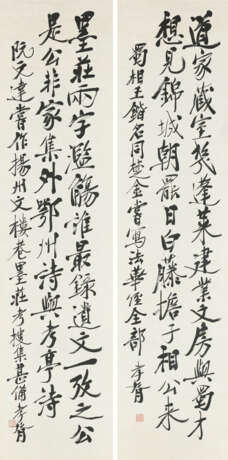 道家蔵室幾蓬莱建業文房與蜀才
想見錦城朝罷日白藤擔子相公來
蜀相王鍇石同益全嘗寫法華經全部 孝胥
墨莊兩字濫觴誰最錄遺文一攷之公
是公非家集外鄂州詩與考亭詩
阮元達嘗作揚州文樓巷墨莊考搜集甚備 孝胥